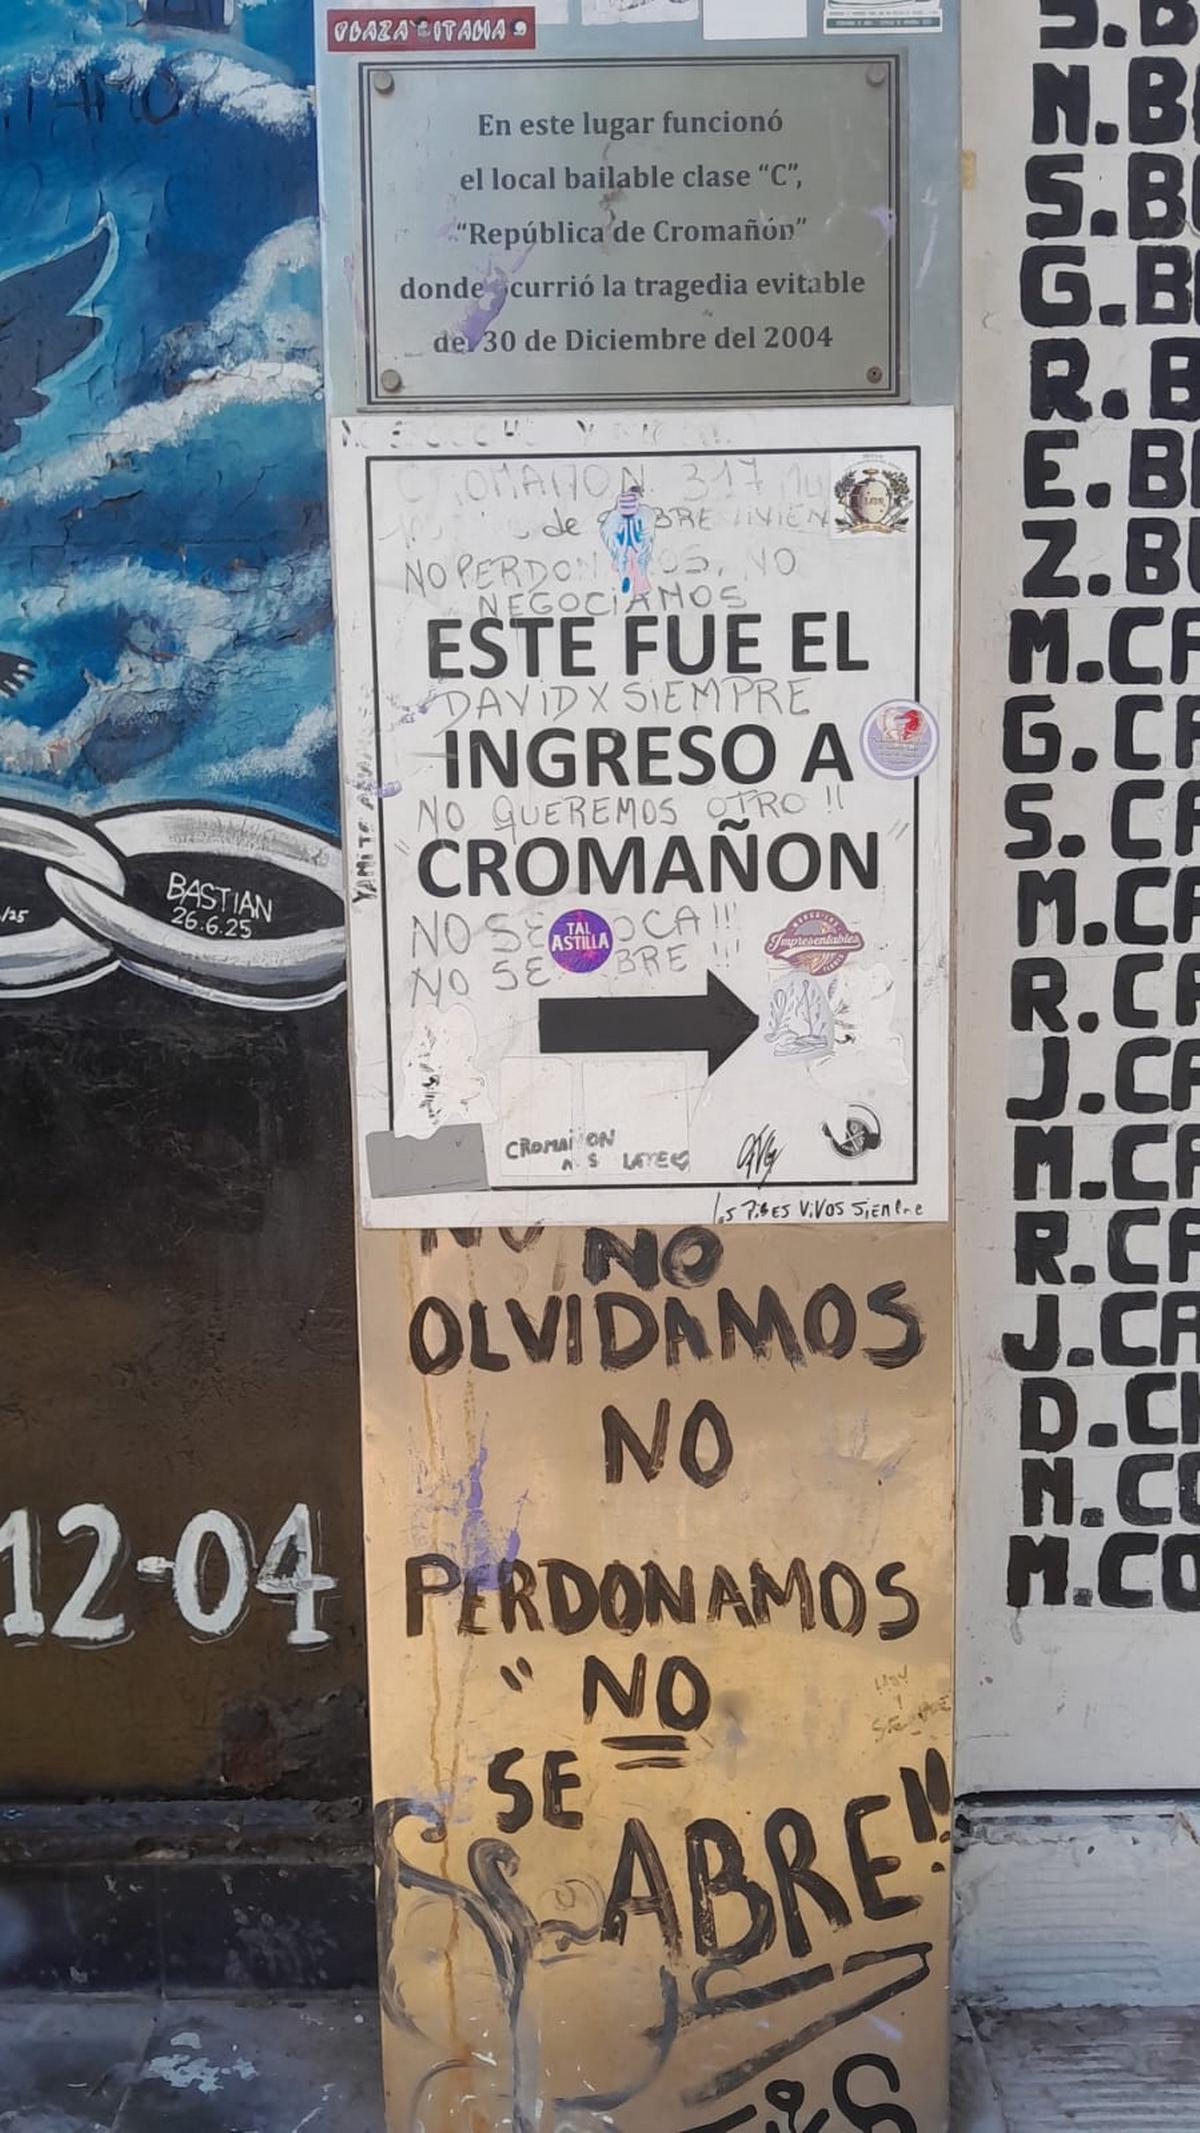 PLAZA ITALIA
En este lugar funcionó
el local bailable clase “C”,
“República de Cromañón”
donde ocurrió la tragedia evitable
del 30 de Diciembre del 2004
CROMAÑON 317
de
NO PERDONAMOS, NO
NEGOCIAMOS
ESTE FUE EL
DAVID X SIEMPRE
INGRESO A
NO QUEREMOS OTRO !!
"CROMAÑON"
NO SE TOCA !!!
NO SE ABRE !!!
TAL
ASTILLA
Impresentables
CROMAÑON
LATE
LOS PIBES VIVOS SIEMPRE
NO
NO
OLVIDAMOS
NO
PERDONAMOS
" NO
SE
ABRE!!
HOY
Y
SIEMPRE
BASTIAN
26.6.25
/25
12-04
S.B
N.B
S.B
G.B
R.B
E.B
Z.B
M.CA
G.CA
S.CA
M.CA
R.CA
J.CA
M.CA
R.CA
J.CA
D.CH
N.CO
M.CO